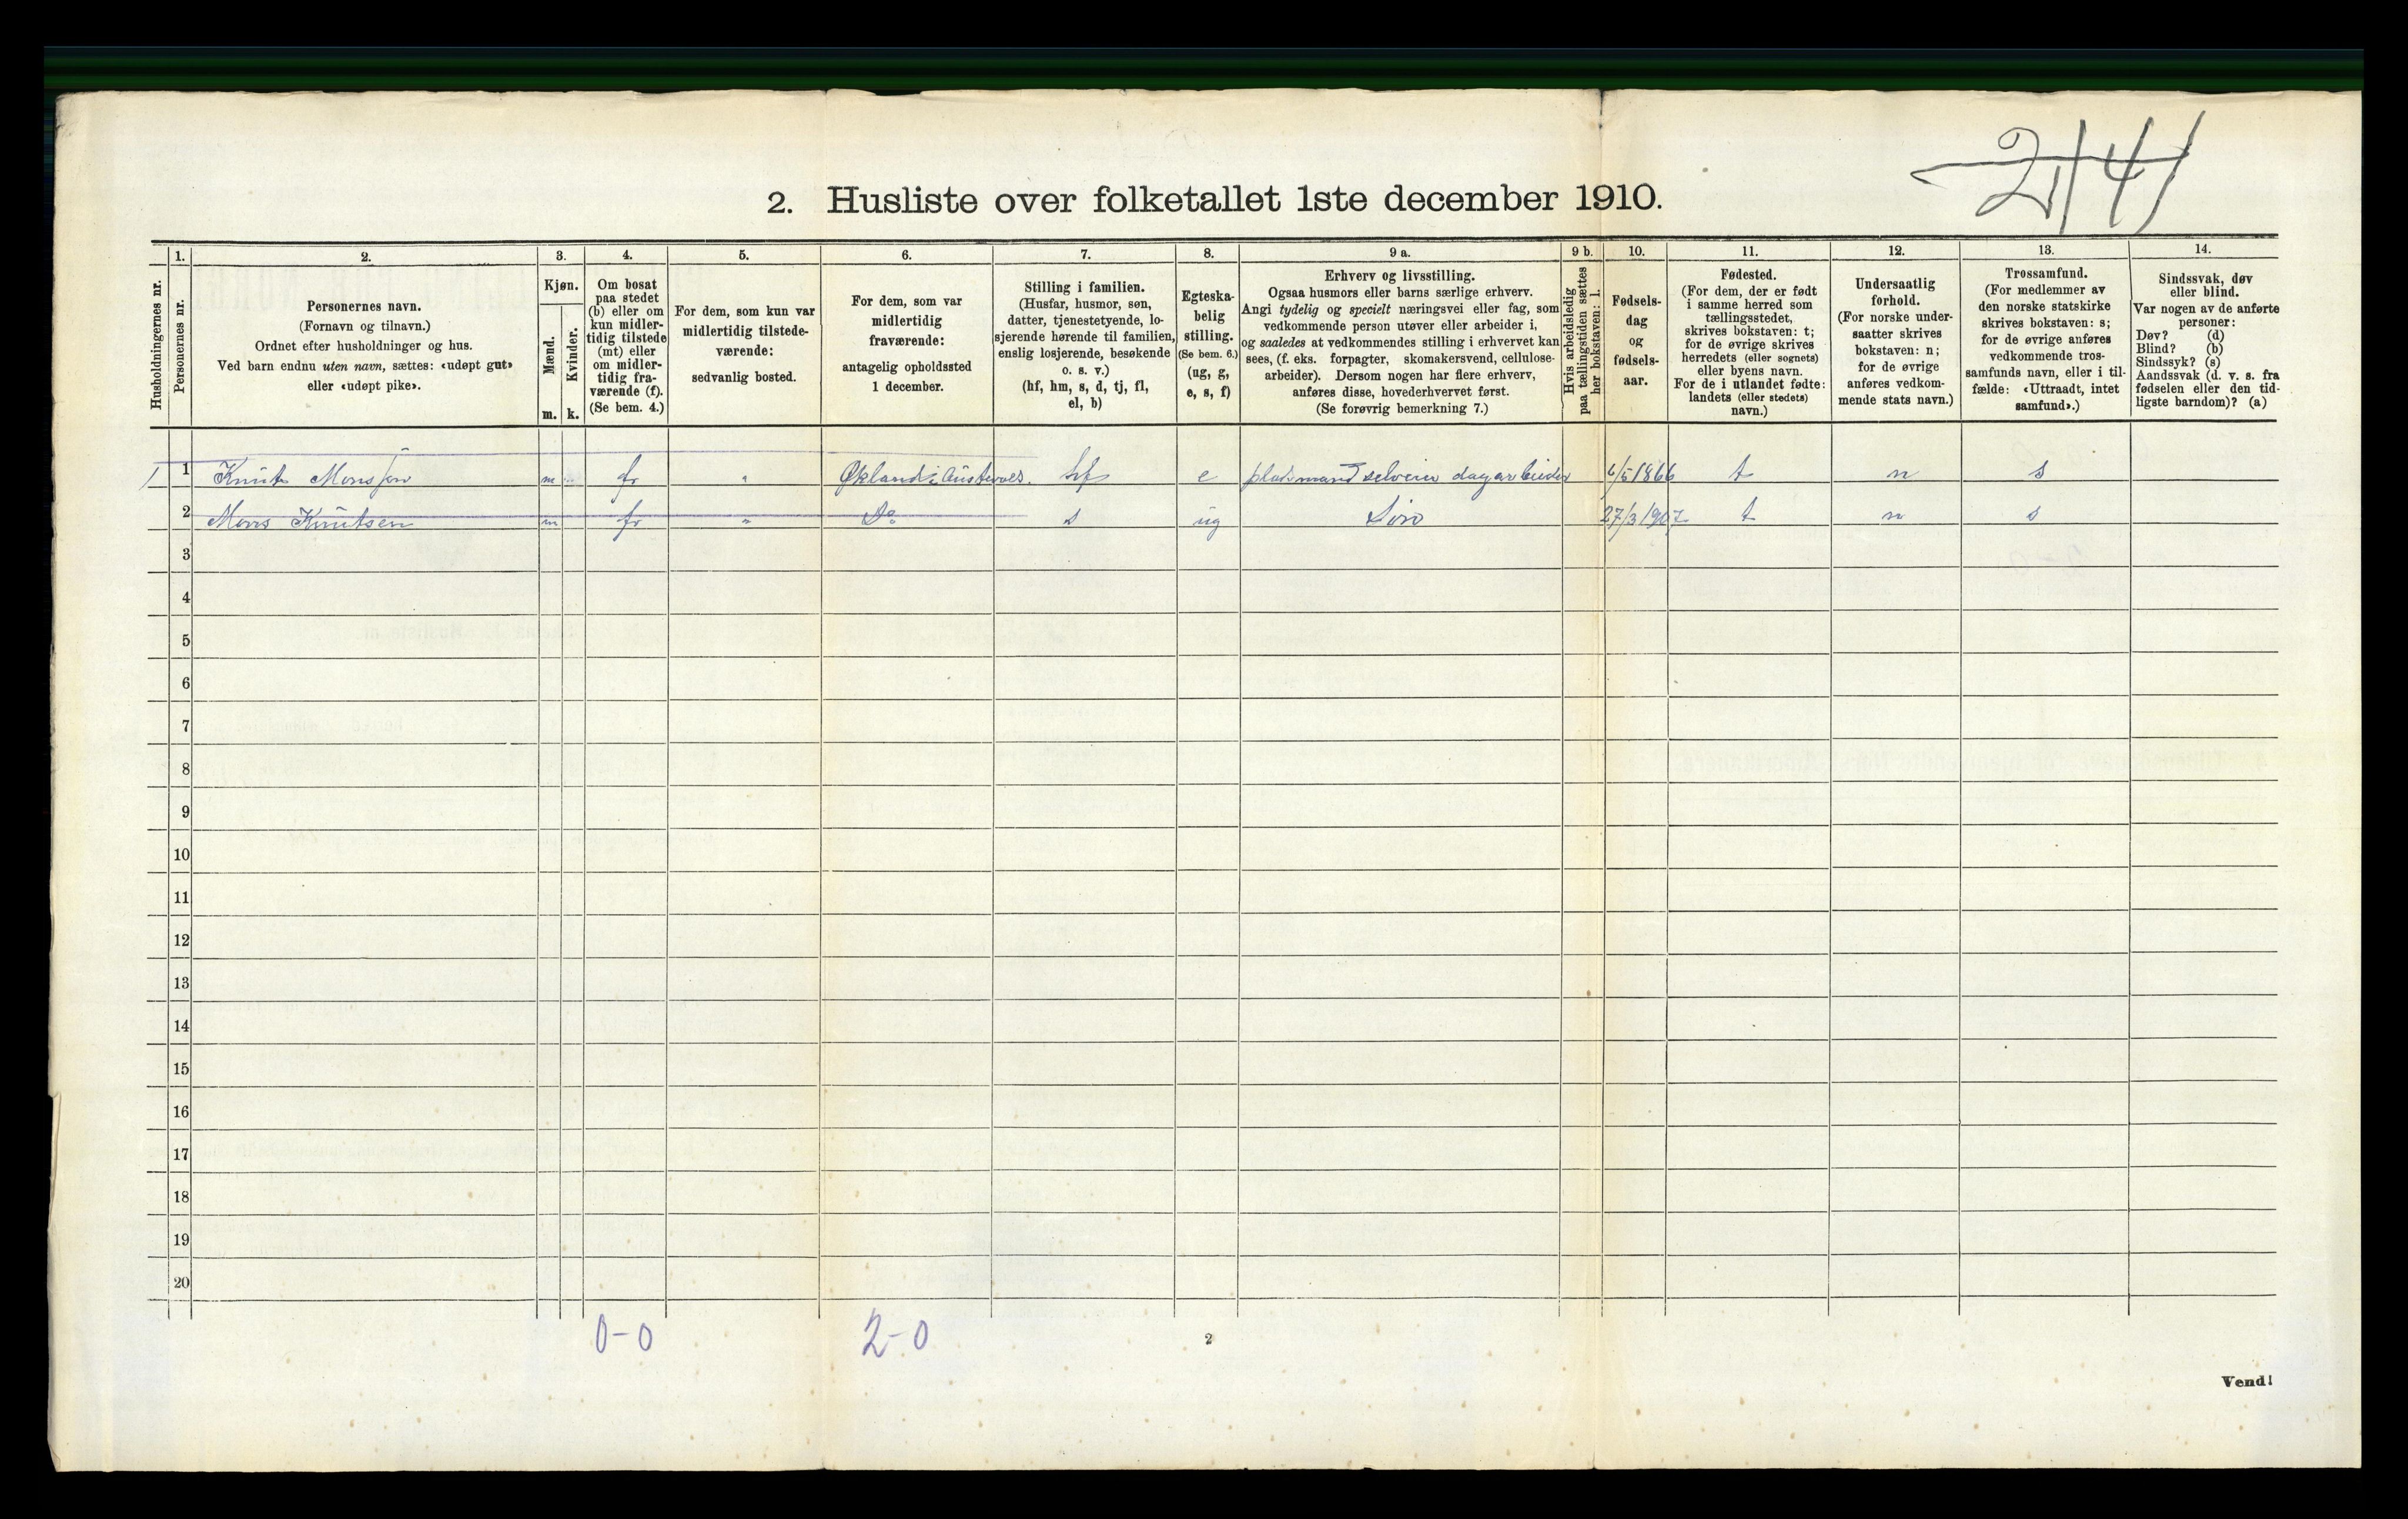 2. Husliste over folketallet 1ste december 1910.
Husholdningernes nr.
1.
Personernes nr.
2.
Personernes navn.
(Fornavn og tilnavn.)
Ordnet efter husholdninger og hus.
Ved barn endnu uten navn, sættes: «udøpt gut»
eller «udøpt pike».
3.
Kjøn.
Mænd.
m.
Kvinder.
k.
4.
Om bosat
paa stedet
(b) eller om
kun midler-
tidig tilstede
(mt) eller
om midler-
tidig fra-
værende (f).
(Se bem. 4.)
5.
For dem, som kun var
midlertidig tilstede-
værende:
sedvanlig bosted.
6.
For dem, som var
midlertidig
fraværende:
antagelig opholdssted
1 december.
7.
Stilling i familien.
(Husfar, husmor, søn,
datter, tjenestetyende, lo-
sjerende hørende til familien,
enslig losjerende, besøkende
o. s. v.)
(hf, hm, s, d, tj, fl,
el, b)
8.
Egteska-
belig
stilling.
(Se bem. 6.)
(ug, g,
e, s, f)
9 a.
Erhverv og livsstilling.
Ogsaa husmors eller barns særlige erhverv.
Angi tydelig og specielt næringsvei eller fag, som
vedkommende person utøver eller arbeider i,
og saaledes at vedkommendes stilling i erhvervet kan
sees, (f. eks. forpagter, skomakersvend, cellulose-
arbeider). Dersom nogen har flere erhverv,
anføres disse, hovederhvervet først.
(Se forøvrig bemerkning 7.)
9 b.
Hvis arbeidsledig
paa tællingstiden sættes
her bokstaven: l.
10.
Fødsels-
dag
og
fødsels-
aar.
11.
Fødested.
(For dem, der er født
i samme herred som
tællingsstedet,
skrives bokstaven: t;
for de øvrige skrives
herredets (eller sognets)
eller byens navn.
For de i utlandet fødte:
landets (eller stedets)
navn.)
12.
Undersaatlig
forhold.
(For norske under-
saatter skrives
bokstaven: n;
for de øvrige
anføres vedkom-
mende stats navn.)
13.
Trossamfund.
(For medlemmer av
den norske statskirke
skrives bokstaven: s;
for de øvrige anføres
vedkommende tros-
samfunds navn, eller i til-
fælde: «Uttraadt, intet
samfund».)
14.
Sindssvak, døv
eller blind.
Var nogen av de anførte
personer:
Døv? (d)
Blind? (b)
Sindssyk? (s)
Aandssvak (d. v. s. fra
fødselen eller den tid-
ligste barndom)? (a)
1 1 Knut Monsson m fr " Økland i Austevoes. hf e platsmand selveier dagarbeider 6/5 1866 t n s
2 Mons Knutsen m fr " Do s ug Søn 27/3 1907 t n s
3
4
5
6
7
8
9
10
11
12
13
14
15
16
17
18
19
20
0-0 2-0
2
Vend!